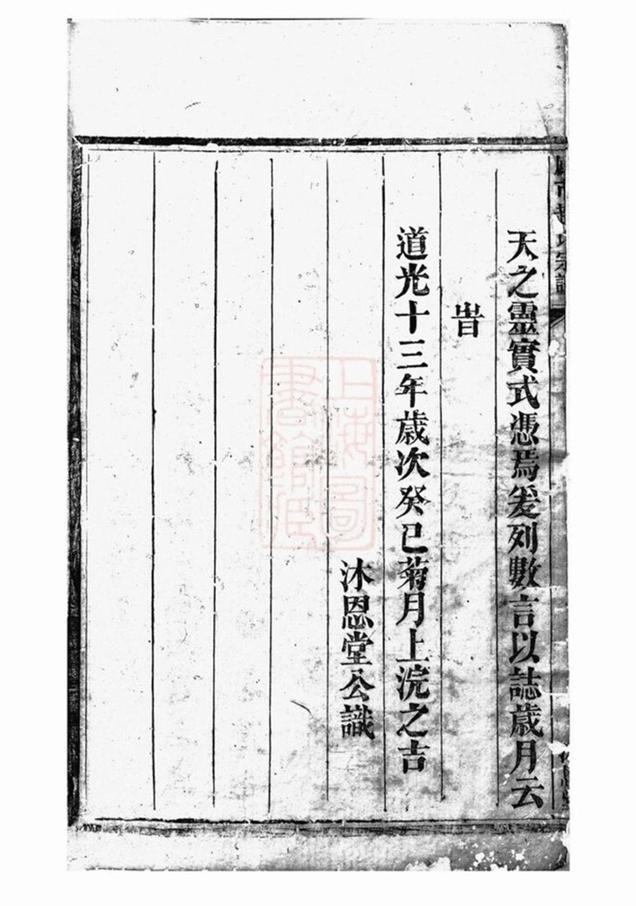 天之靈實式憑焉爰列數言以誌歲月云
旹
道光十三年歲次癸巳菊月上浣之吉
沐恩堂公識
上海圖書館藏